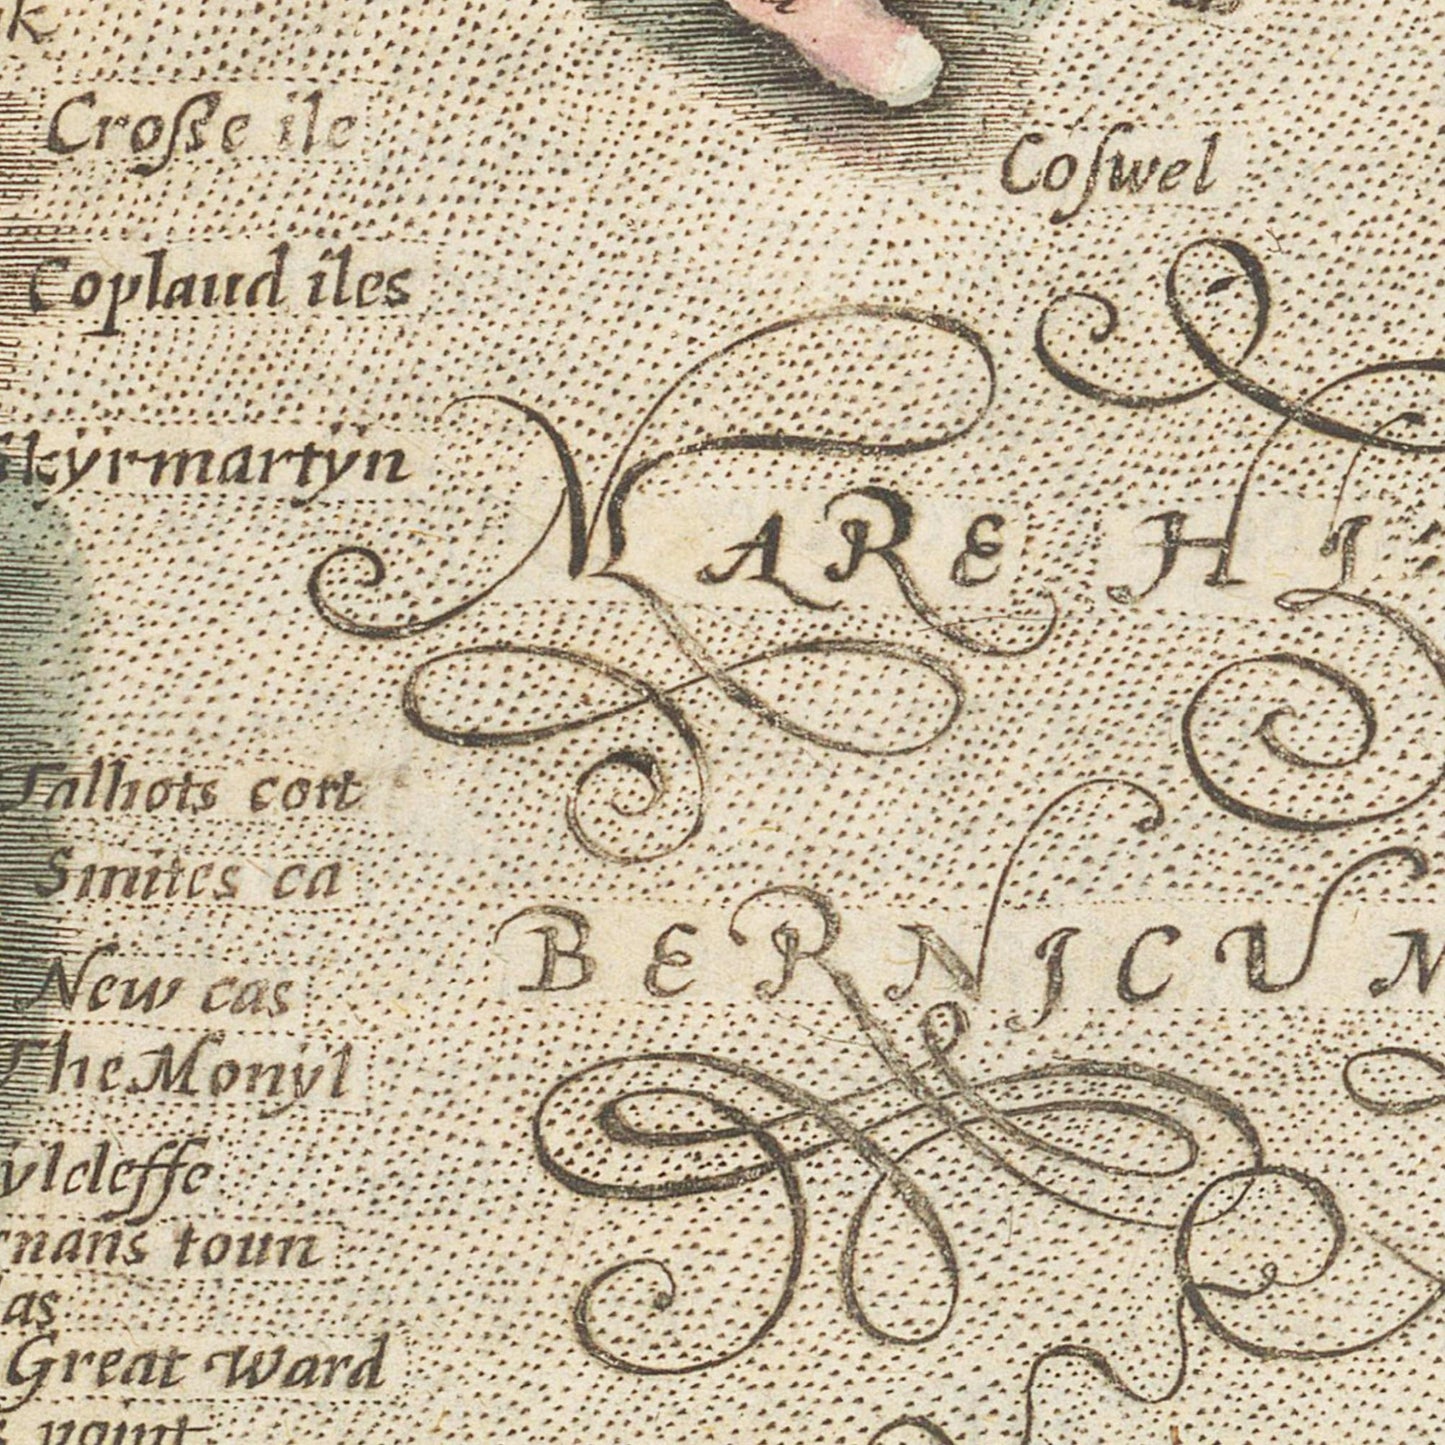 Croſse ile
Coſwel
Coplaud iles
Skyrmartyn
MARE HI
Talhots cort
Smites ca
BERNICUM
New cas
The Monyl
ylcleffe
rnans toun
as
Great Ward
point